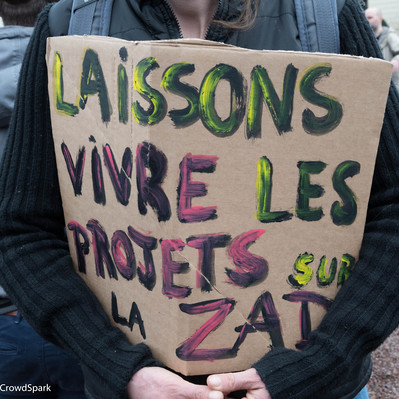 LAiSSONS
ViVRE LES
PROJETS SUR
LA ZAD
CrowdSpark